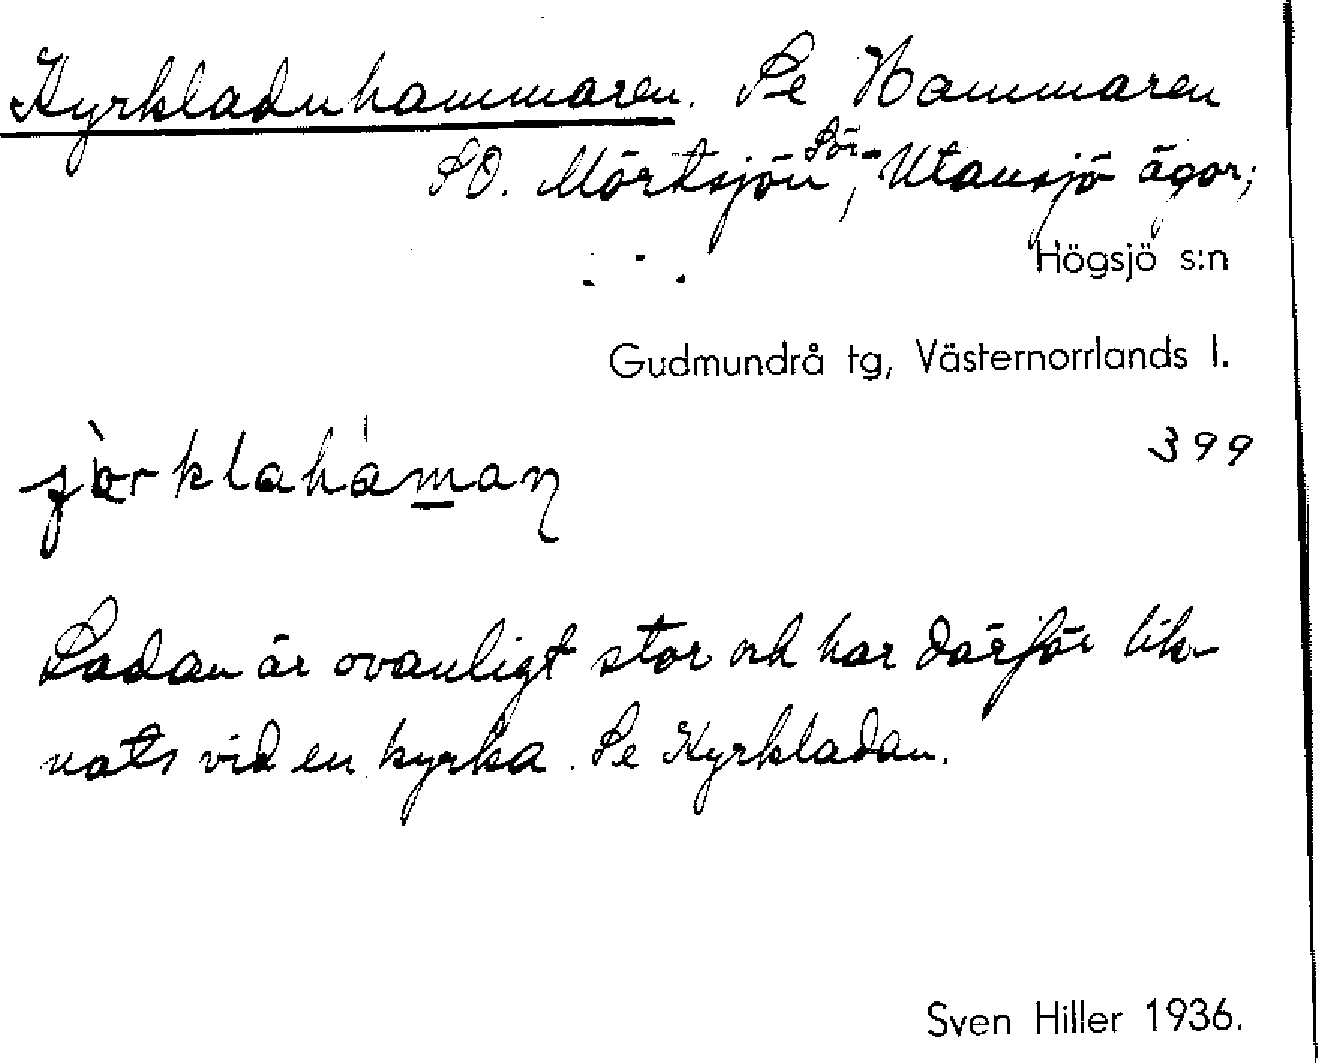 Kyrkladuhammaren. Se Hammaren
SO. Mörtsjön, Sör-Utansjö ägor;
Högsjö s:n
Gudmundrå tg, Västernorrlands l.
399
Ladan är ovanligt stor och har därför lik-
nats vid en kyrka. Se Kyrkladan.
Sven Hiller 1936.